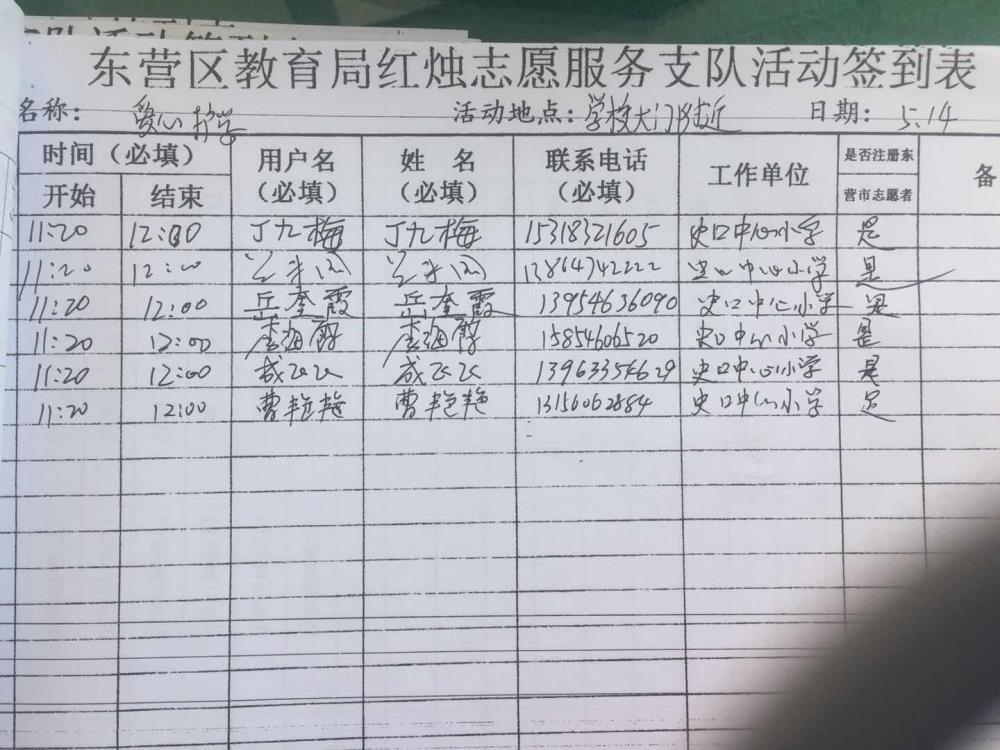 东营区教育局红烛志愿服务支队活动签到表
名称： 爱心护学 活动地点：学校大门附近 日期： 5.14
时间（必填） 用户名（必填） 姓 名（必填） 联系电话（必填） 工作单位 是否注册东营市志愿者 备
开始 结束
11:20 12:00 丁九梅 丁九梅 15318321605 史口中心小学 是
11:20 12:00 13864742222 史口中心小学 是
11:20 12:00 岳奎霞 岳奎霞 13954636090 史口中心小学 是
11:20 12:00 李海 李海 15854606520 史口中心小学 是
11:20 12:00 13963354629 史口中心小学 是
11:20 12:00 曹艳艳 曹艳艳 13156062884 史口中心小学 是